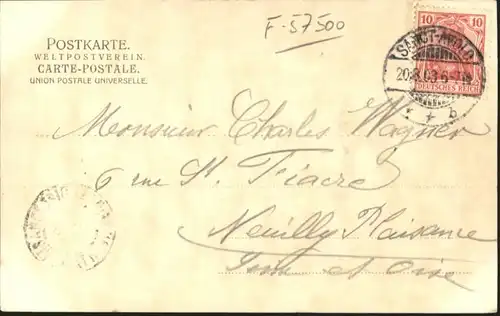 F-57500
POSTKARTE.
WELTPOSTVEREIN.
CARTE-POSTALE.
UNION POSTALE UNIVERSELLE.
10 10
DEUTSCHES REICH
SANCT-AVOLD
20.8.03.6-7N
* * b
Monsieur Charles Wagner
6 rue St. Fiacre
Neuilly Plaisance
Seine et Oise